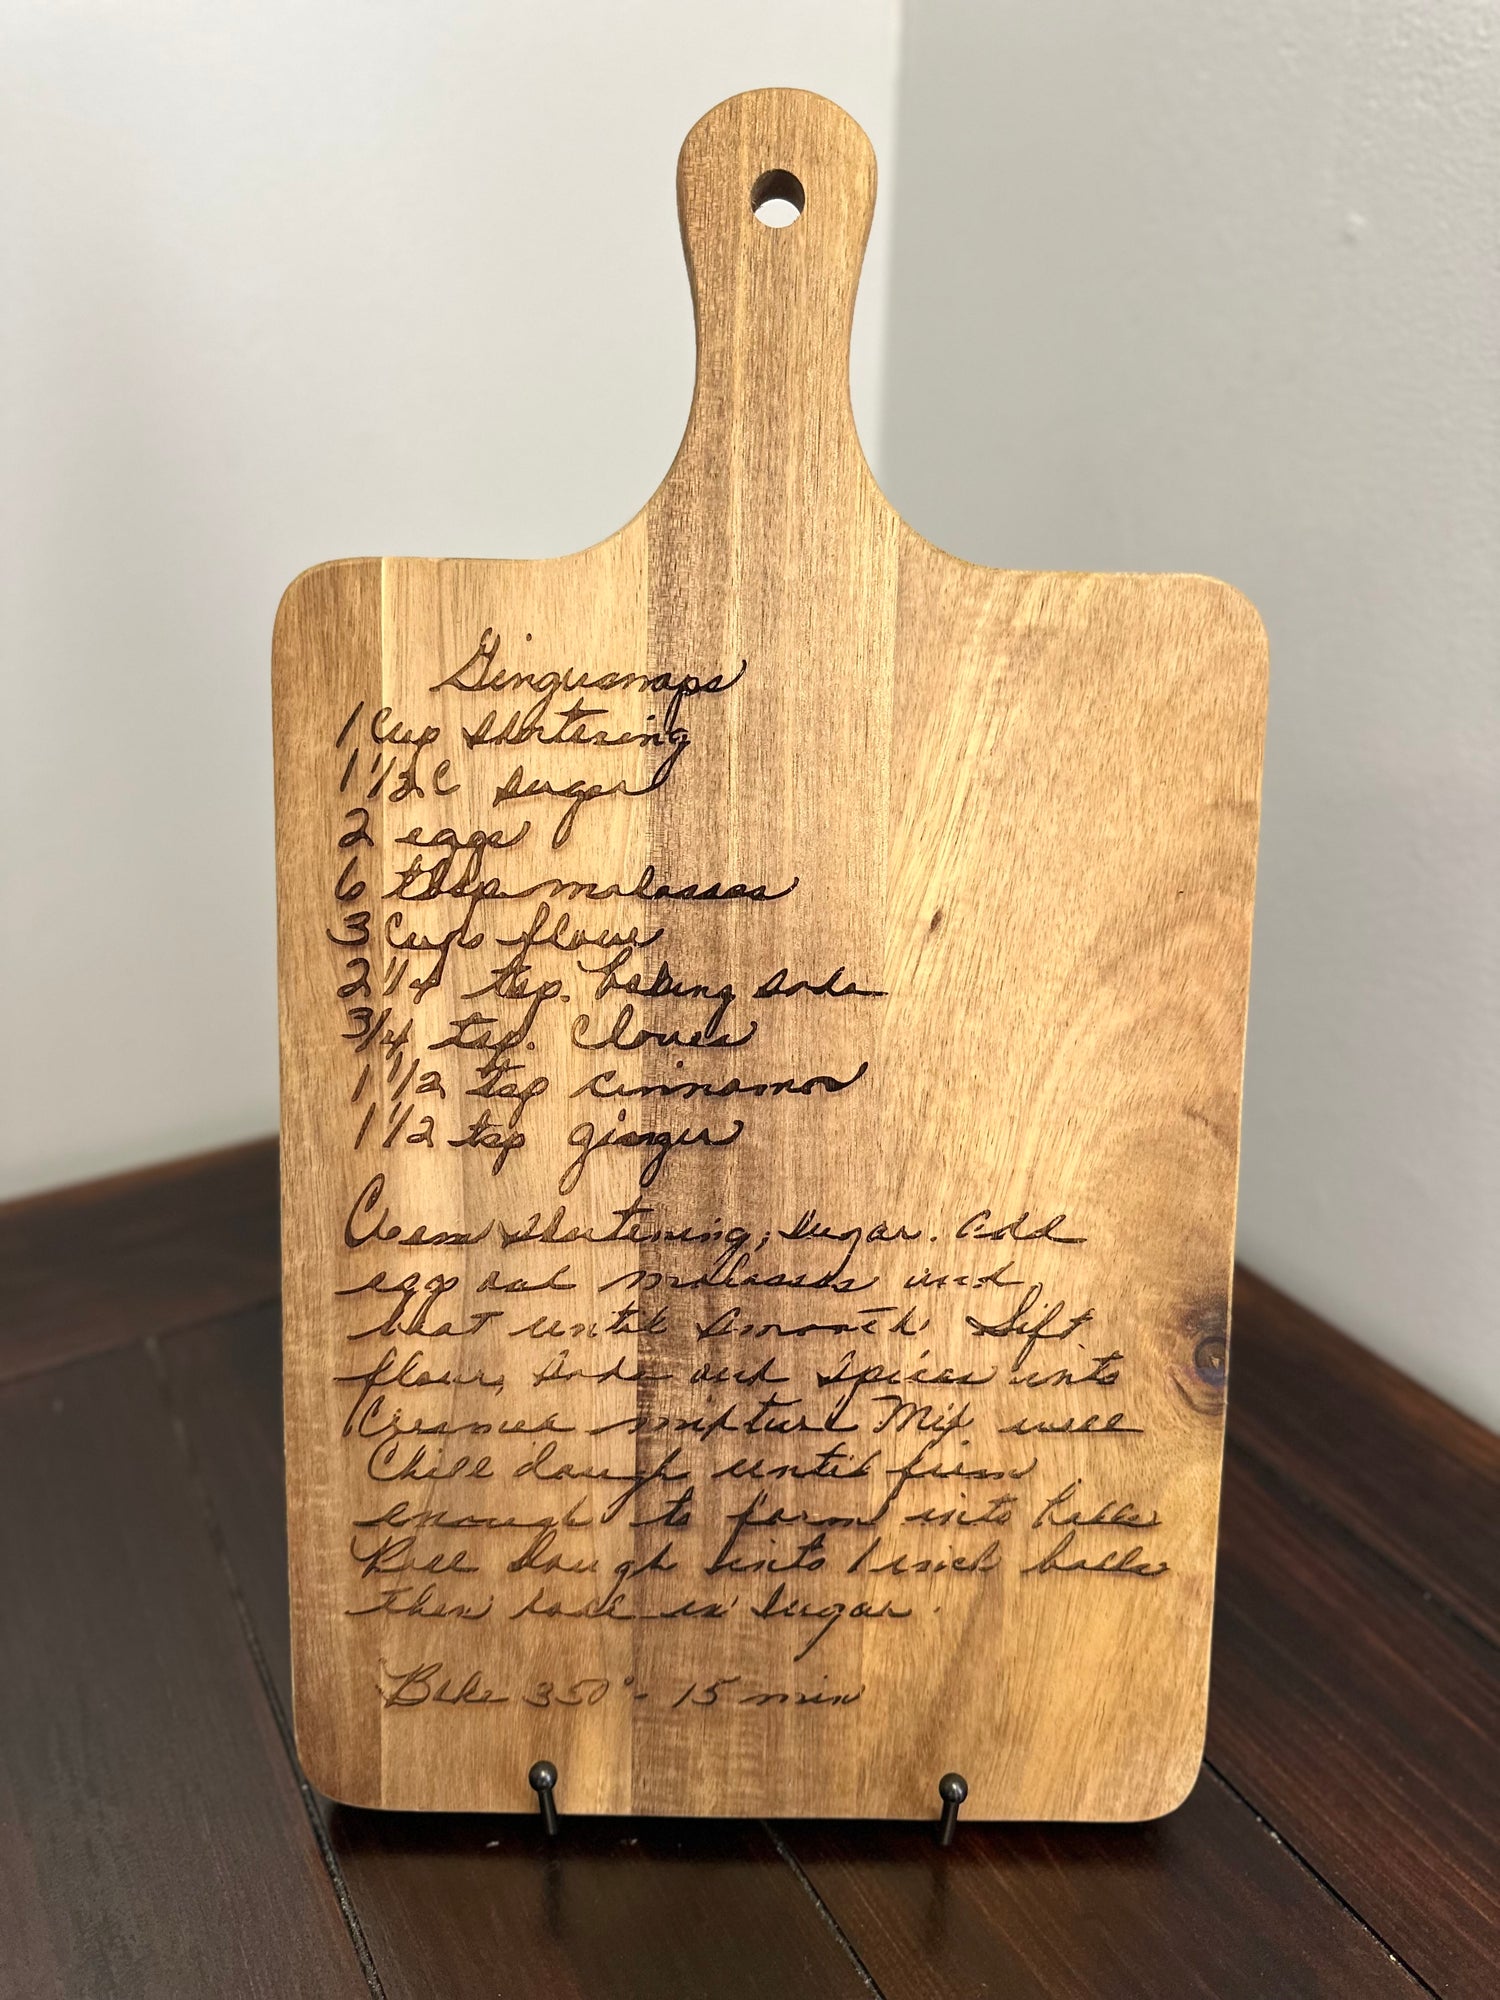 Gingersnaps
1 Cup shortening
1 1/2 C sugar
2 eggs
6 tbsp molasses
3 Cups flour
2 1/4 tsp. baking soda
3/4 tsp. Cloves
1 1/2 tsp cinnamon
1 1/2 tsp ginger
Cream shortening, sugar. Add
egg and molasses and
beat until smooth Sift
flour, soda and spices into
Creamed mixture Mix well
Chill dough until firm
enough to form into balls
Roll dough into 1 inch balls
then roll in sugar.
Bake 350° - 15 min